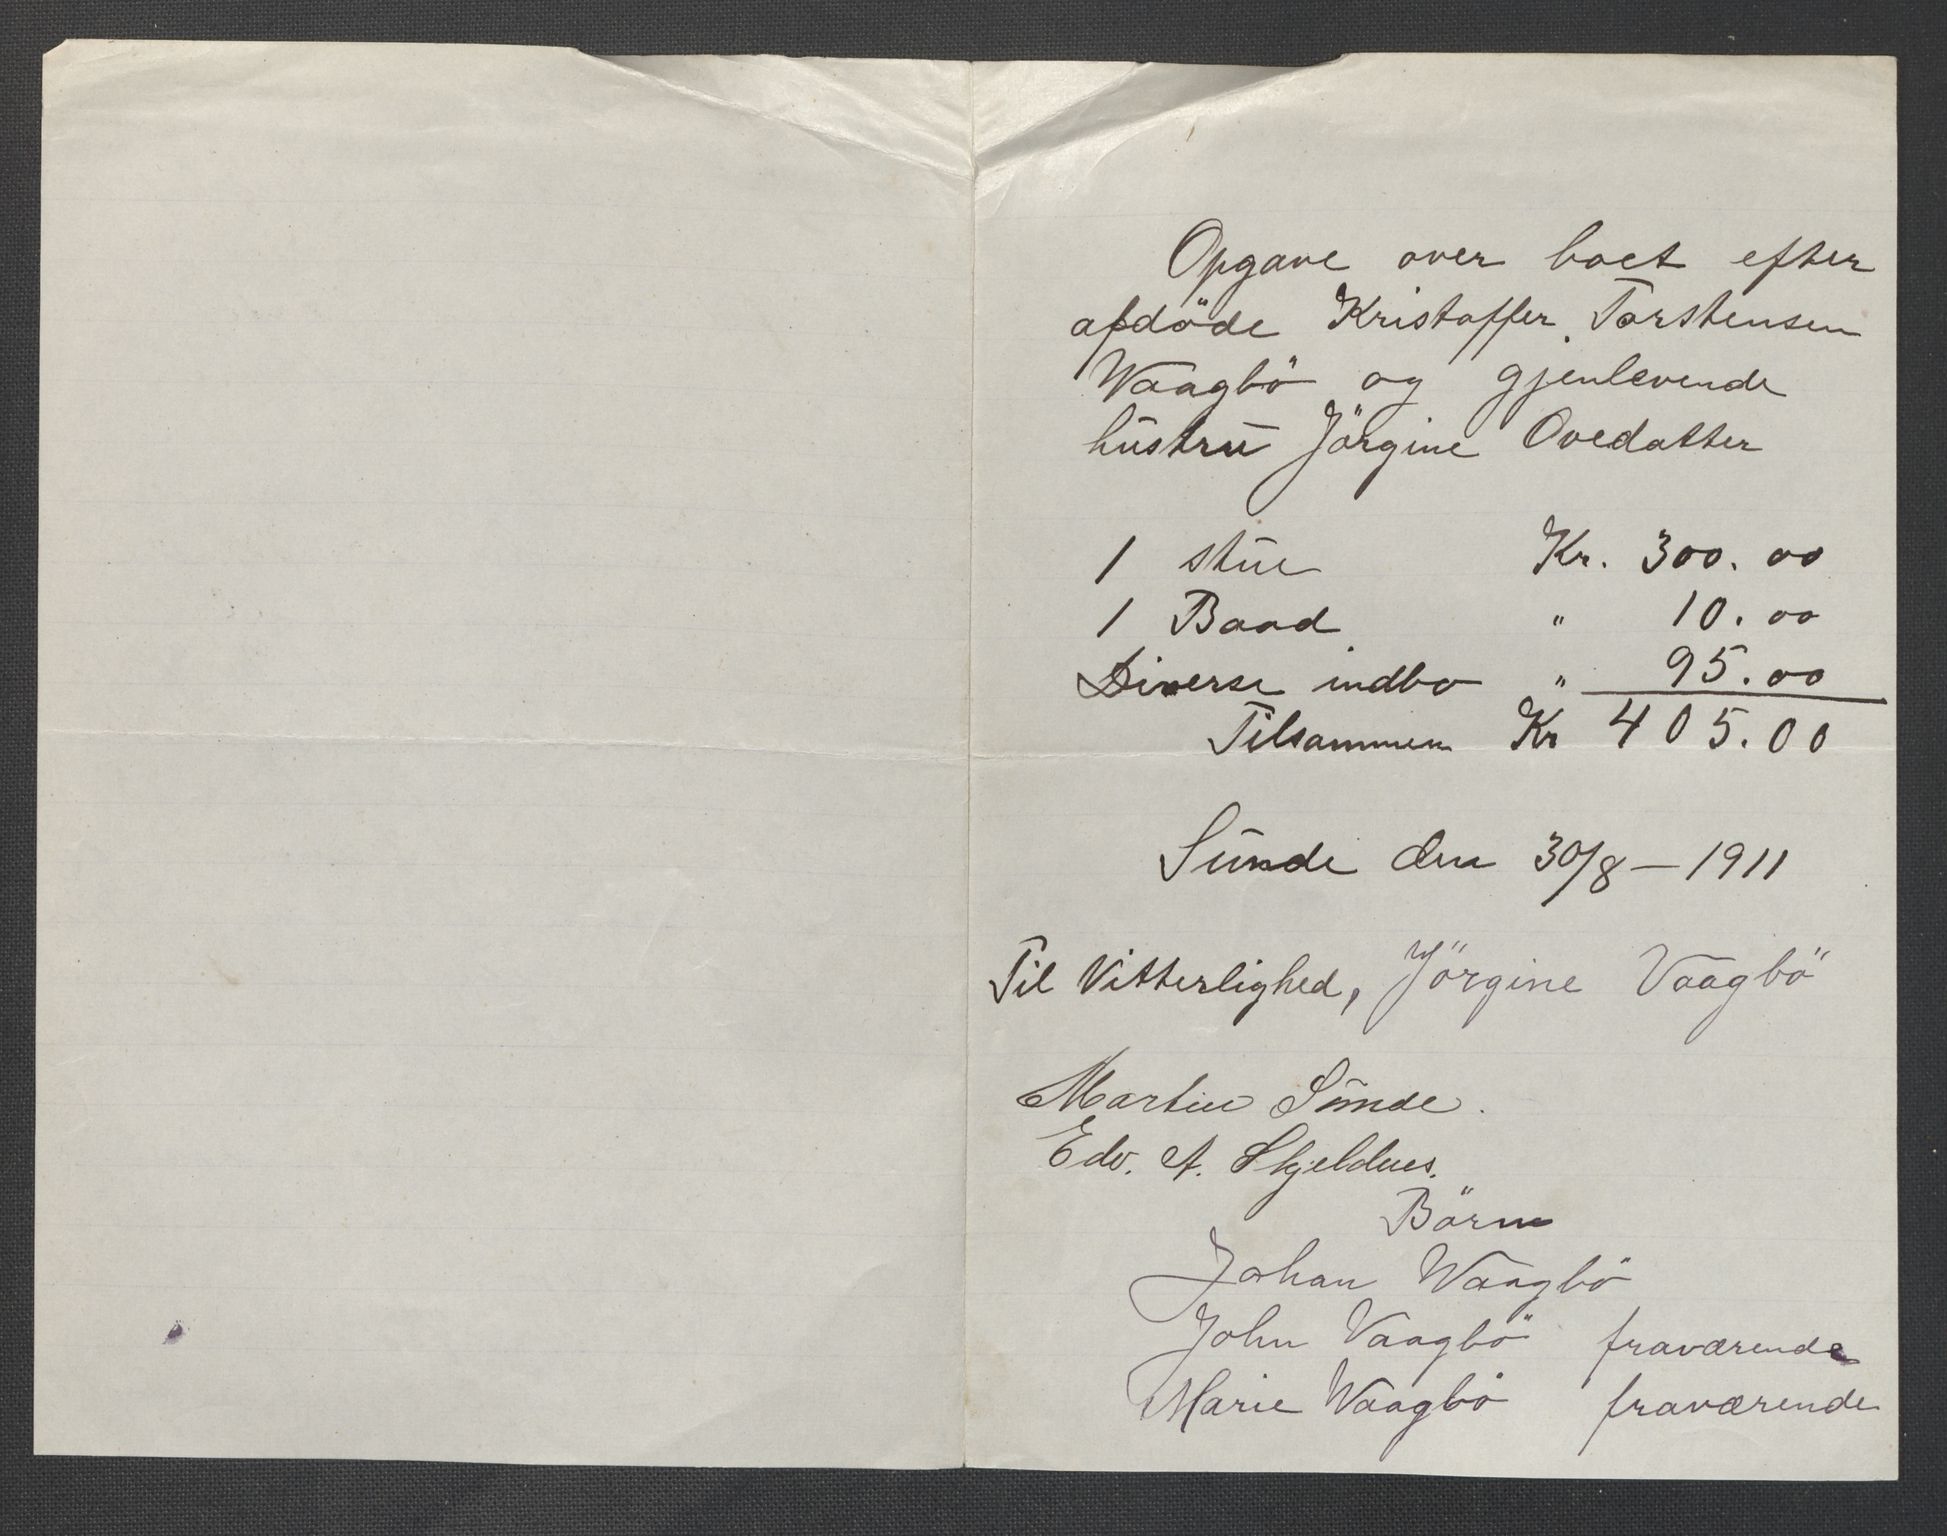 Opgave over boet efter
afdöde Kristoffer Torstensen
Waagbö og gjenlevende
hustru Jörgine Ovedatter
1 stue Kr. 300.00
1 Baad " 10.00
Diverse indbo " 95.00
Tilsammen Kr 405.00
Sunde den 30/8 - 1911
Til Vitterlighed, Jörgine Vaagbö
Martin Sunde.
Edv. A. Skjeldnes.
Börn
Johan Waagbö
John Vaagbö fraværende
Marie Waagbö fraværende